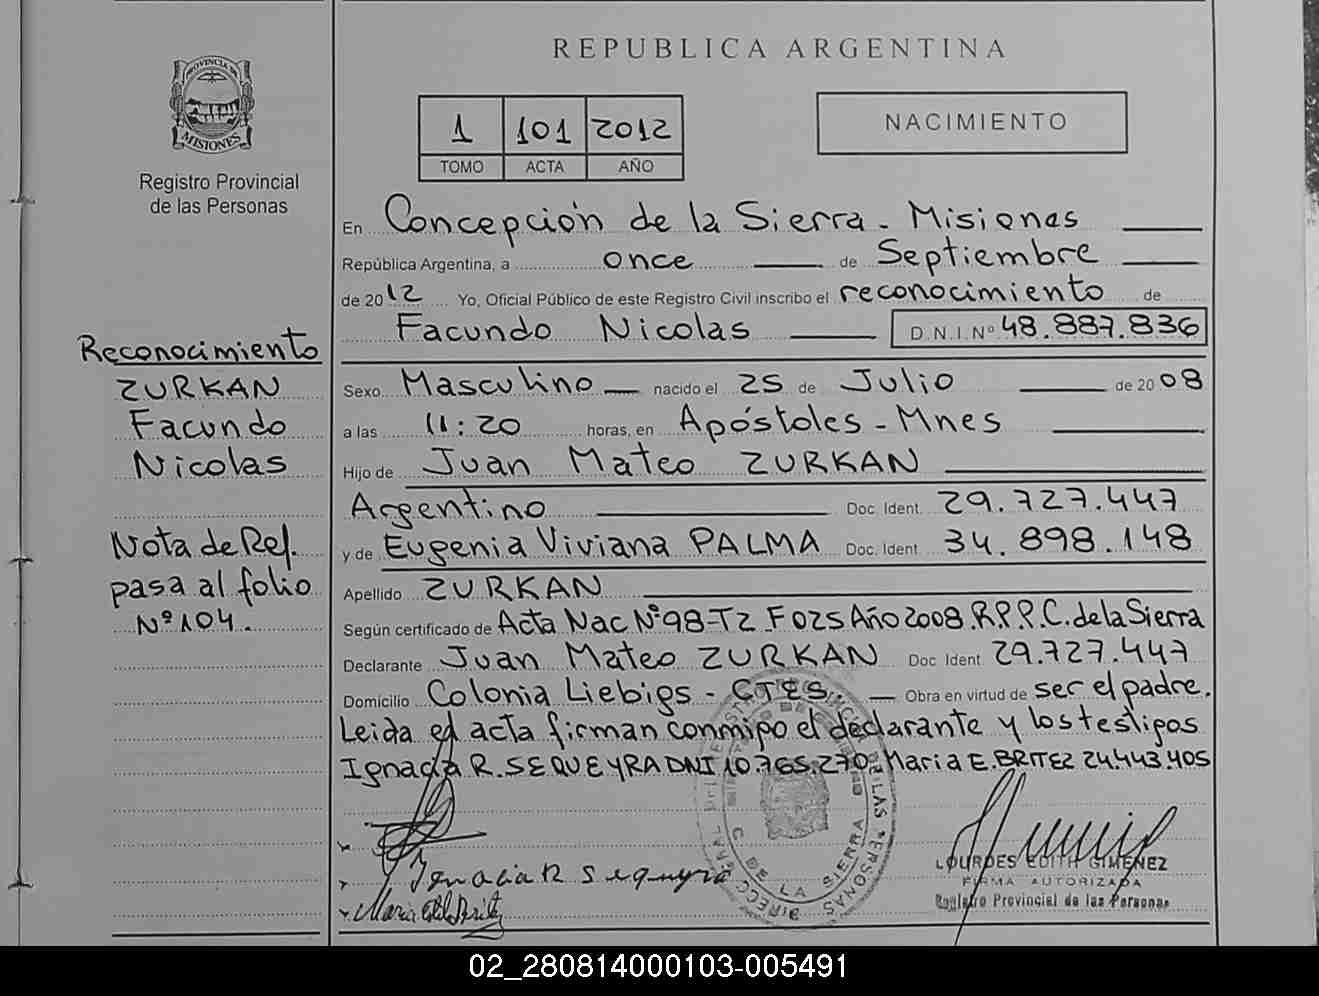 REPUBLICA ARGENTINA
PROVINCIA DE
MISIONES
Registro Provincial
de las Personas
1 101 2012
TOMO ACTA AÑO
NACIMIENTO
En Concepción de la Sierra - Misiones
República Argentina, a once de Septiembre
de 2012 Yo, Oficial Público de este Registro Civil inscribo el reconocimiento de
Facundo Nicolas D.N.I. Nº 48.887.836
Sexo Masculino nacido el 25 de Julio de 2008
a las 11:20 horas, en Apóstoles - Mnes
Hijo de Juan Mateo ZURKAN
Argentino Doc. Ident. 29.727.447
y de Eugenia Viviana PALMA Doc. Ident. 34.898.148
Apellido ZURKAN
Según certificado de Acta Nac Nº98-T2_F025 Año 2008.R.P.P.C. de la Sierra
Declarante Juan Mateo ZURKAN Doc Ident 29.727.447
Domicilio Colonia Liebigs - CTES. Obra en virtud de ser el padre.
Leida el acta firman conmigo el declarante y los testigos
Ignacia R. SEQUEYRA DNI 10.765.270. Maria E. BRITEZ 24.443.405
Reconocimiento
ZURKAN
Facundo
Nicolas
Nota de Ref.
pasa al folio
Nº 104.
Ignacia R Sequeyra
C. DE LA SIERRA
LOURDES EDITH GIMENEZ
FIRMA AUTORIZADA
Registro Provincial de las Personas
02_280814000103-005491